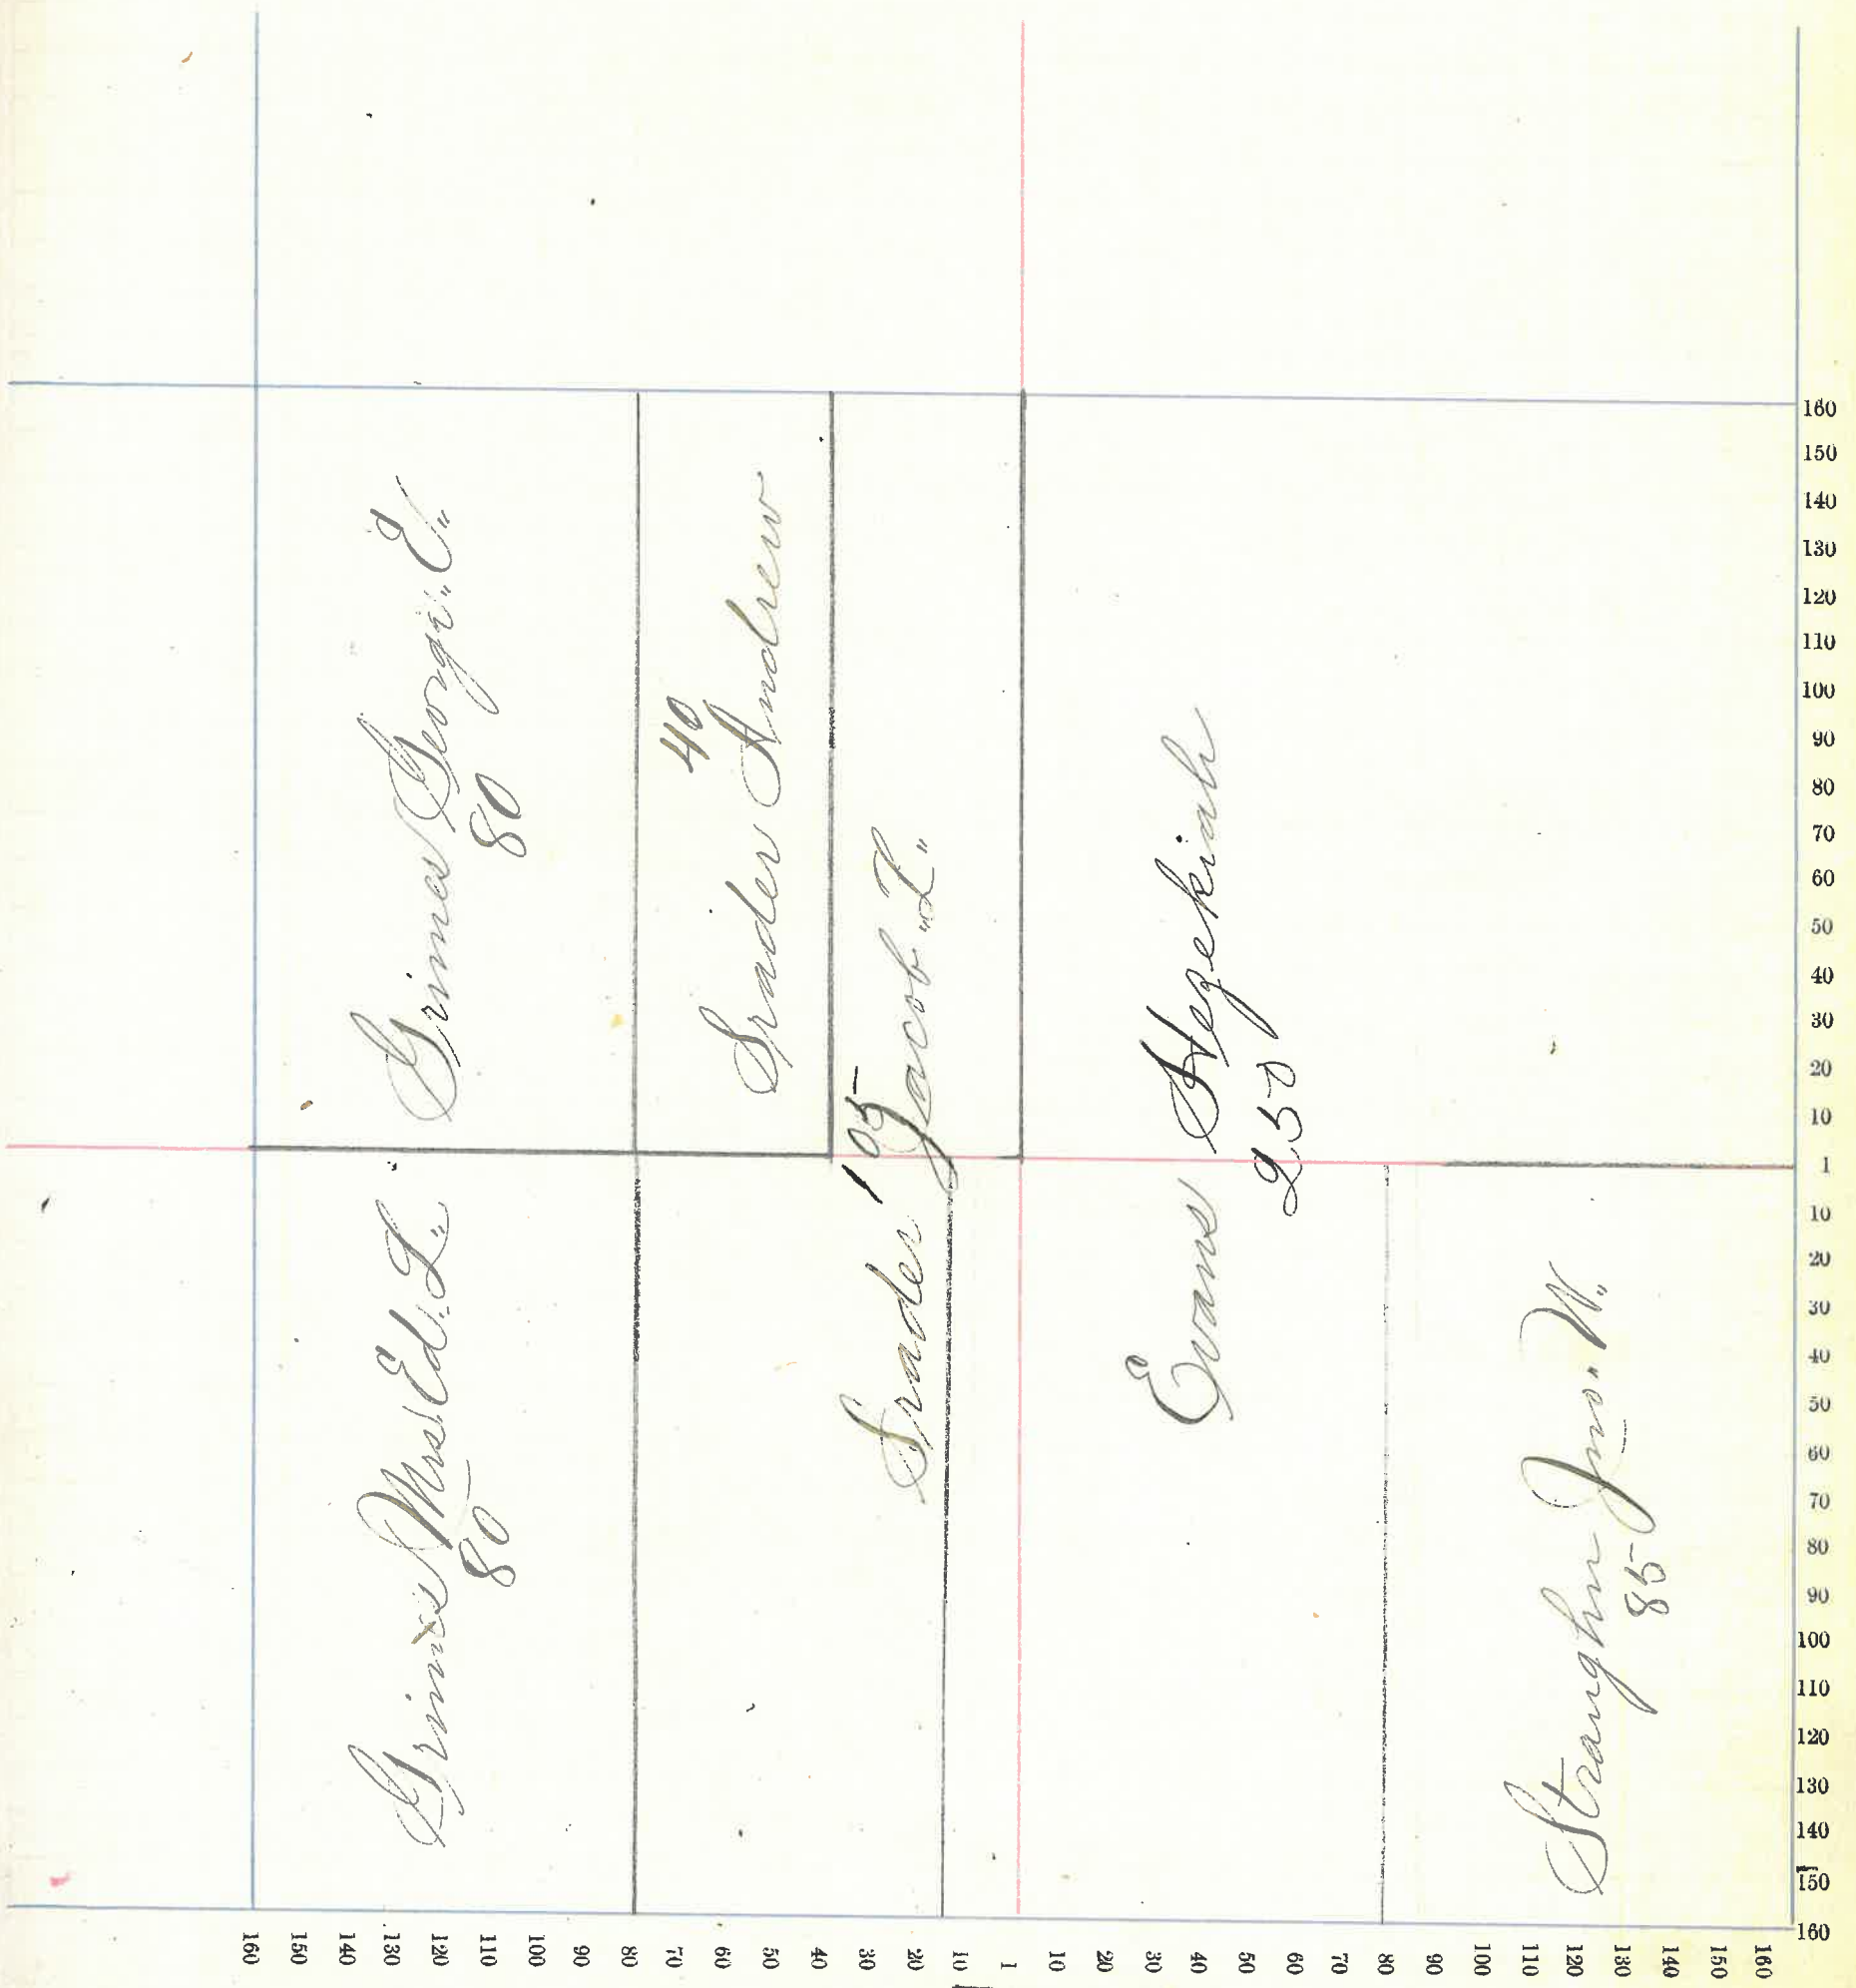 Grimes George "E"
80
40
Srader Andrew
105
Srader Jacob "L"
Evans Hezekiah
250
Grimes Mrs Ed. L"
80
Straughn Jno. "W"
85
160
150
140
130
120
110
100
90
80
70
60
50
40
30
20
10
1
10
20
30
40
50
60
70
80
90
100
110
120
130
140
150
160
160 150 140 130 120 110 100 90 80 70 60 50 40 30 20 10 1 10 20 30 40 50 60 70 80 90 100 110 120 130 140 150 160